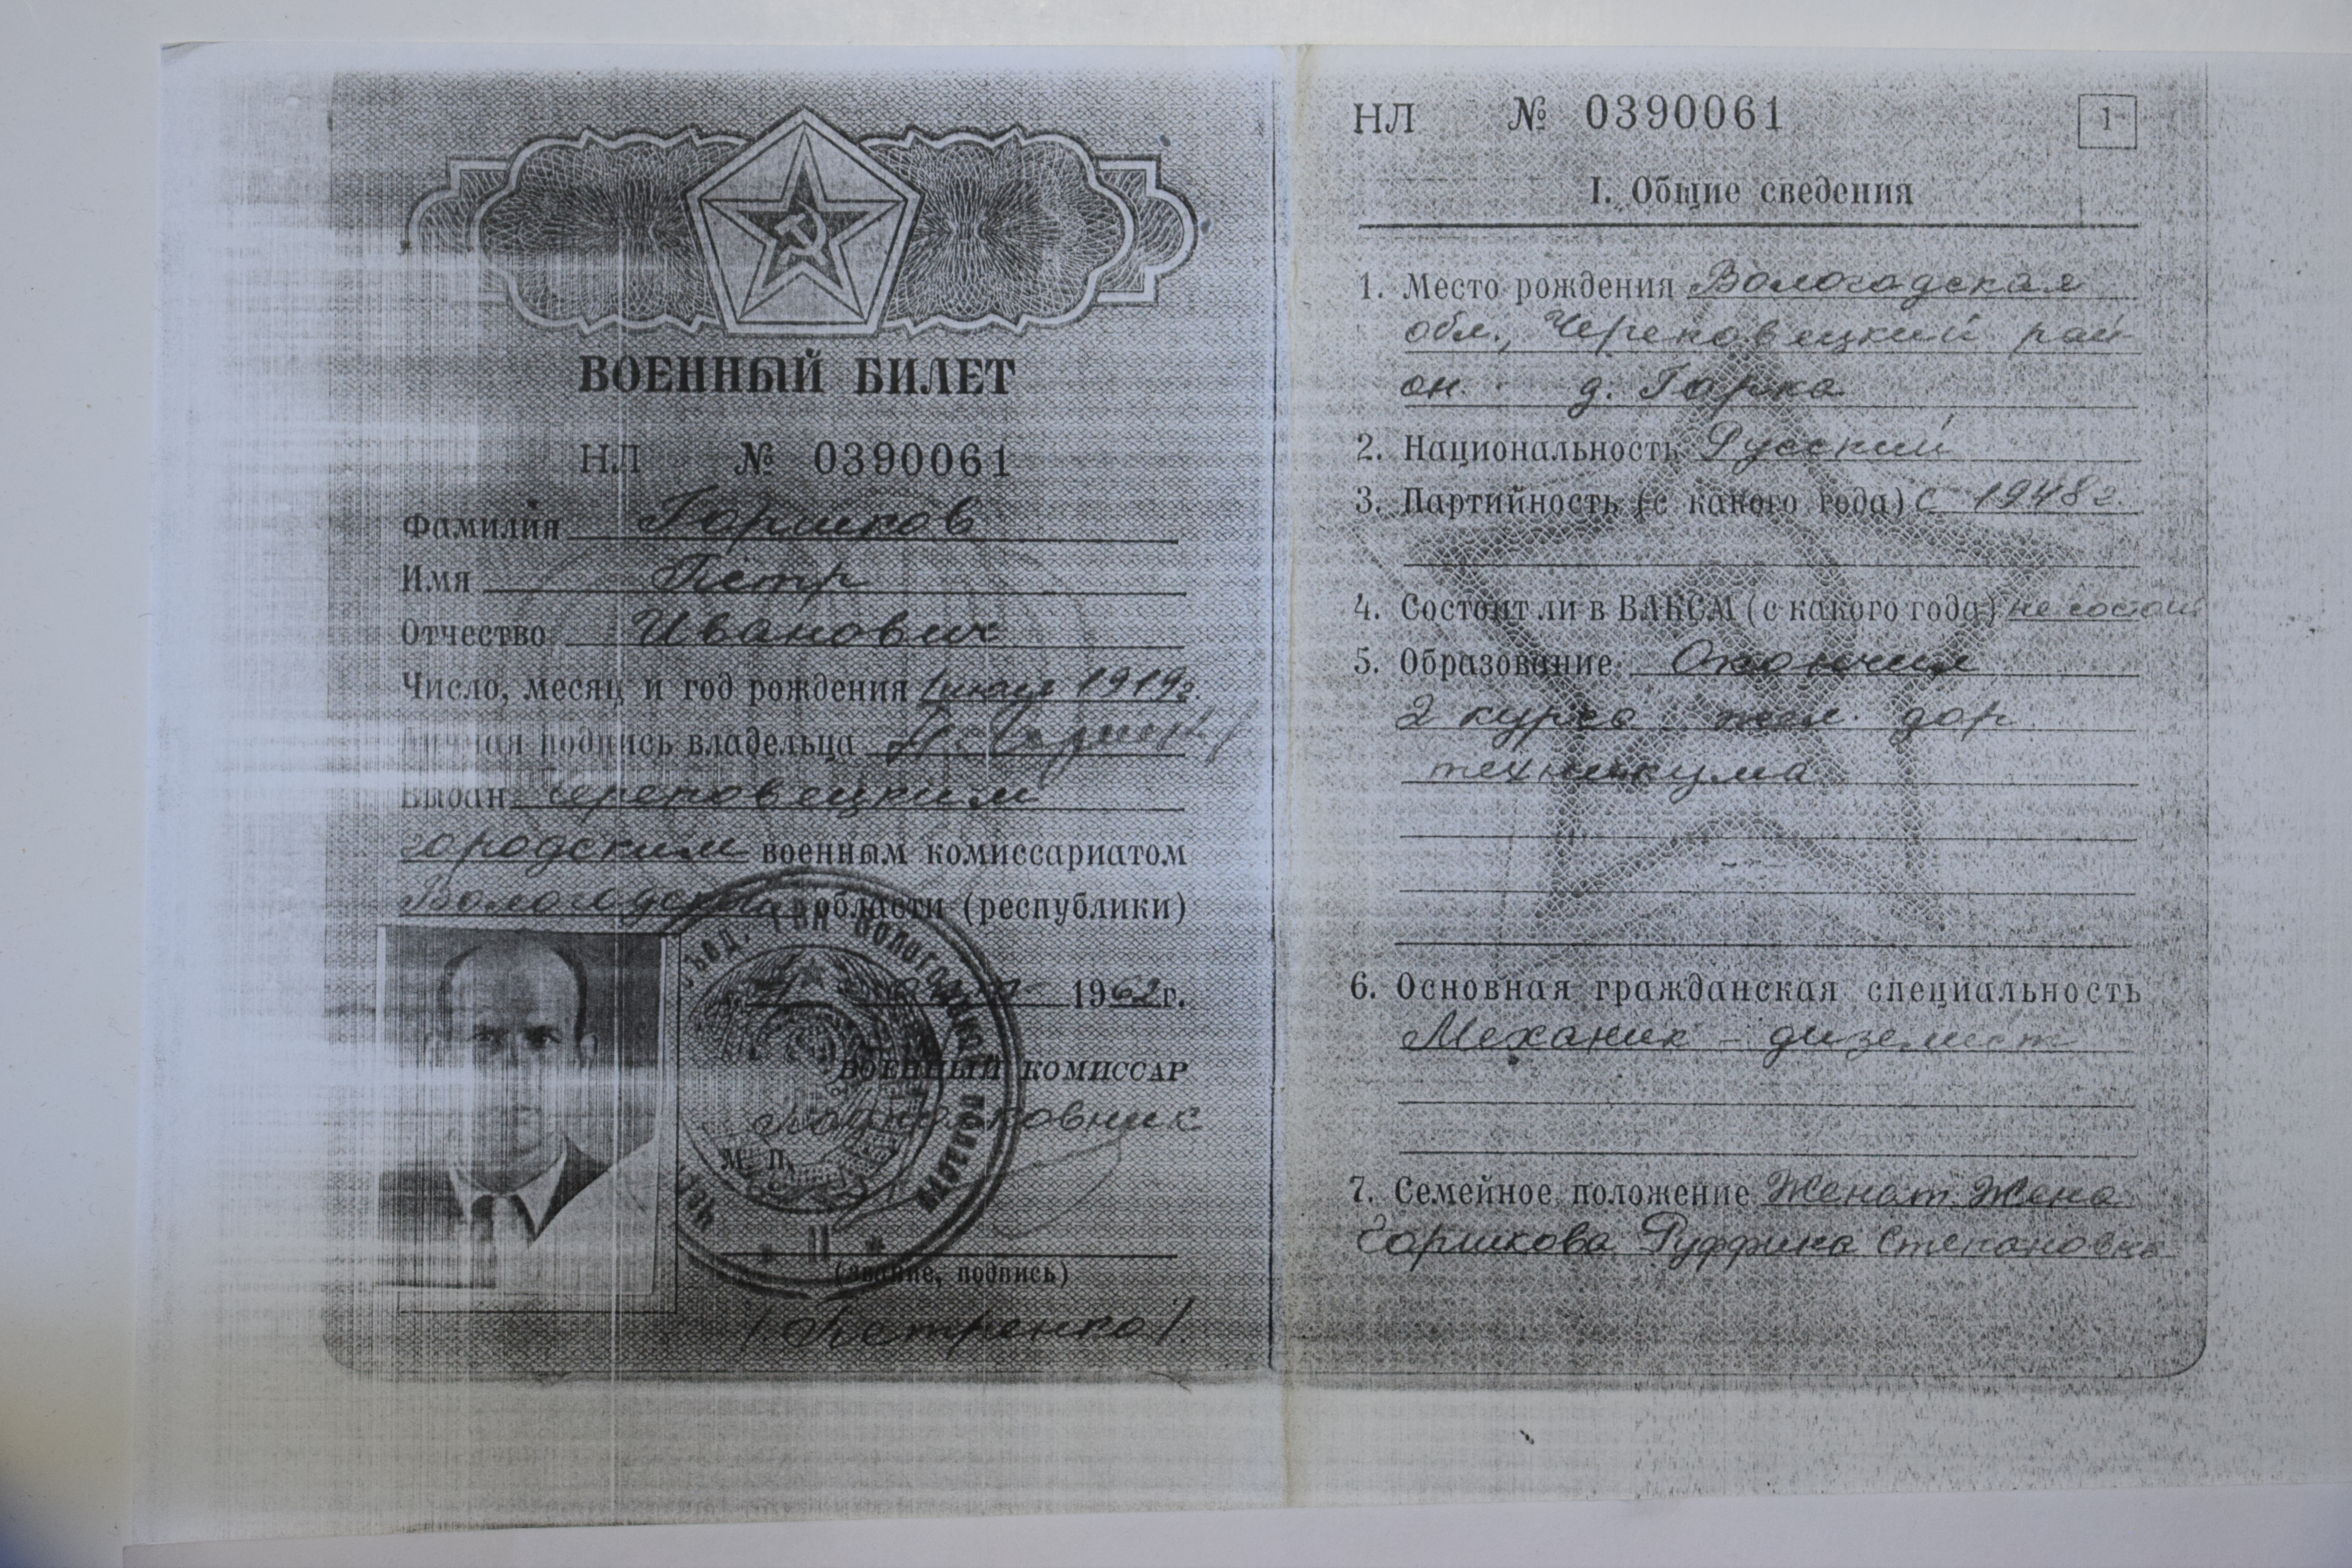 ВОЕННЫЙ БИЛЕТ
НЛ № 0390061
Фамилия Горшков
Имя Пётр
Отчество Иванович
Число, месяц и год рождения 1 июля 1919г.
Личная подпись владельца
Выдан Череповецким
городским военным комиссариатом
Вологодской области (республики)
1962г.
ВОЕННЫЙ КОМИССАР
Подполковник
М. П.
(звание, подпись)
/Петренко/
НЛ № 0390061
1
I. Общие сведения
1. Место рождения Вологодская
обл., Череповецкий рай
он. д. Горка
2. Национальность Русский
3. Партийность (с какого года) с 1948г.
4. Состоит ли в ВЛКСМ (с какого года) не состоит
5. Образование Окончил
2 курса жел. дор
техникума
6. Основная гражданская специальность
Механик - дизелист
7. Семейное положение Женат. Жена
Горшкова Руффина Степановна